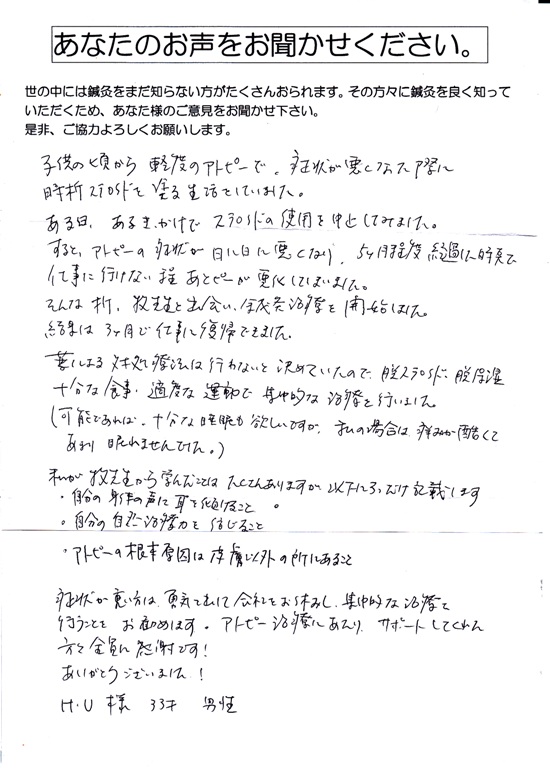 あなたのお声をお聞かせください。
世の中には鍼灸をまだ知らない方がたくさんおられます。その方々に鍼灸を良く知って
いただくため、あなた様のご意見をお聞かせ下さい。
是非、ご協力よろしくお願いします。
子供の頃から 軽度のアトピーで、症状が悪くなった際に
時折ステロイドを塗る生活をしていました。
ある日、あるきっかけでステロイドの使用を中止してみました。
すると、アトピーの症状が日に日に悪くなり、5ヶ月程度経過した時点で
仕事に行けない程あとピーが悪化してしまいました。
そんな折、牧先生と出会い、鍼灸治療を開始しました。
結果は3ヶ月で仕事に復帰できました。
薬による対処療法は行わないと決めていたので、脱ステロイド、脱保湿
十分な食事、適度な運動で集中的な治療を行いました
(可能であれば、十分な睡眠も欲しいですが、私の場合は痒みが酷くて
あまり眠れませんでした。)
私が牧先生から学んだことはたくさんありますが以下に3つだけ記載します
・自分の身体の声に耳を傾けること。
・自分の自然治療力を信じること
・アトピーの根本原因は皮膚以外の所にあること
症状が悪い方は、勇気を出して会社をお休みし、集中的な治療を
行うことをお勧めます。アトピー治療にあたり、サポートしてくれた
方々全員に感謝です!
ありがとうございました!
H・U 様 33才 男性